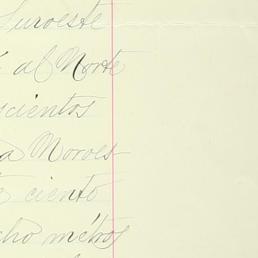 Suroeste
al Norte
cientos
a Moroes
ciento
cho métros